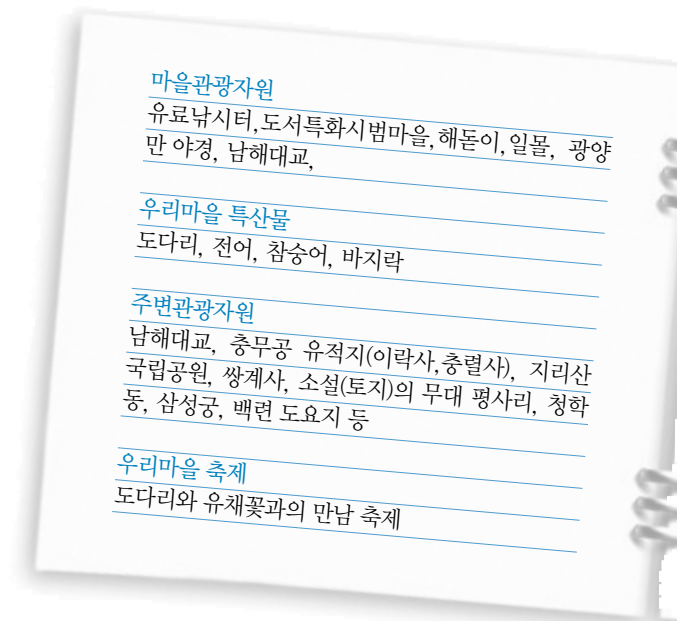 마을관광자원
유료낚시터,도서특화시범마을,해돋이,일몰, 광양
만 야경, 남해대교,
우리마을 특산물
도다리, 전어, 참숭어, 바지락
주변관광자원
남해대교, 충무공 유적지(이락사,충렬사), 지리산
국립공원, 쌍계사, 소설(토지)의 무대 평사리, 청학
동, 삼성궁, 백련 도요지 등
우리마을 축제
도다리와 유채꽃과의 만남 축제